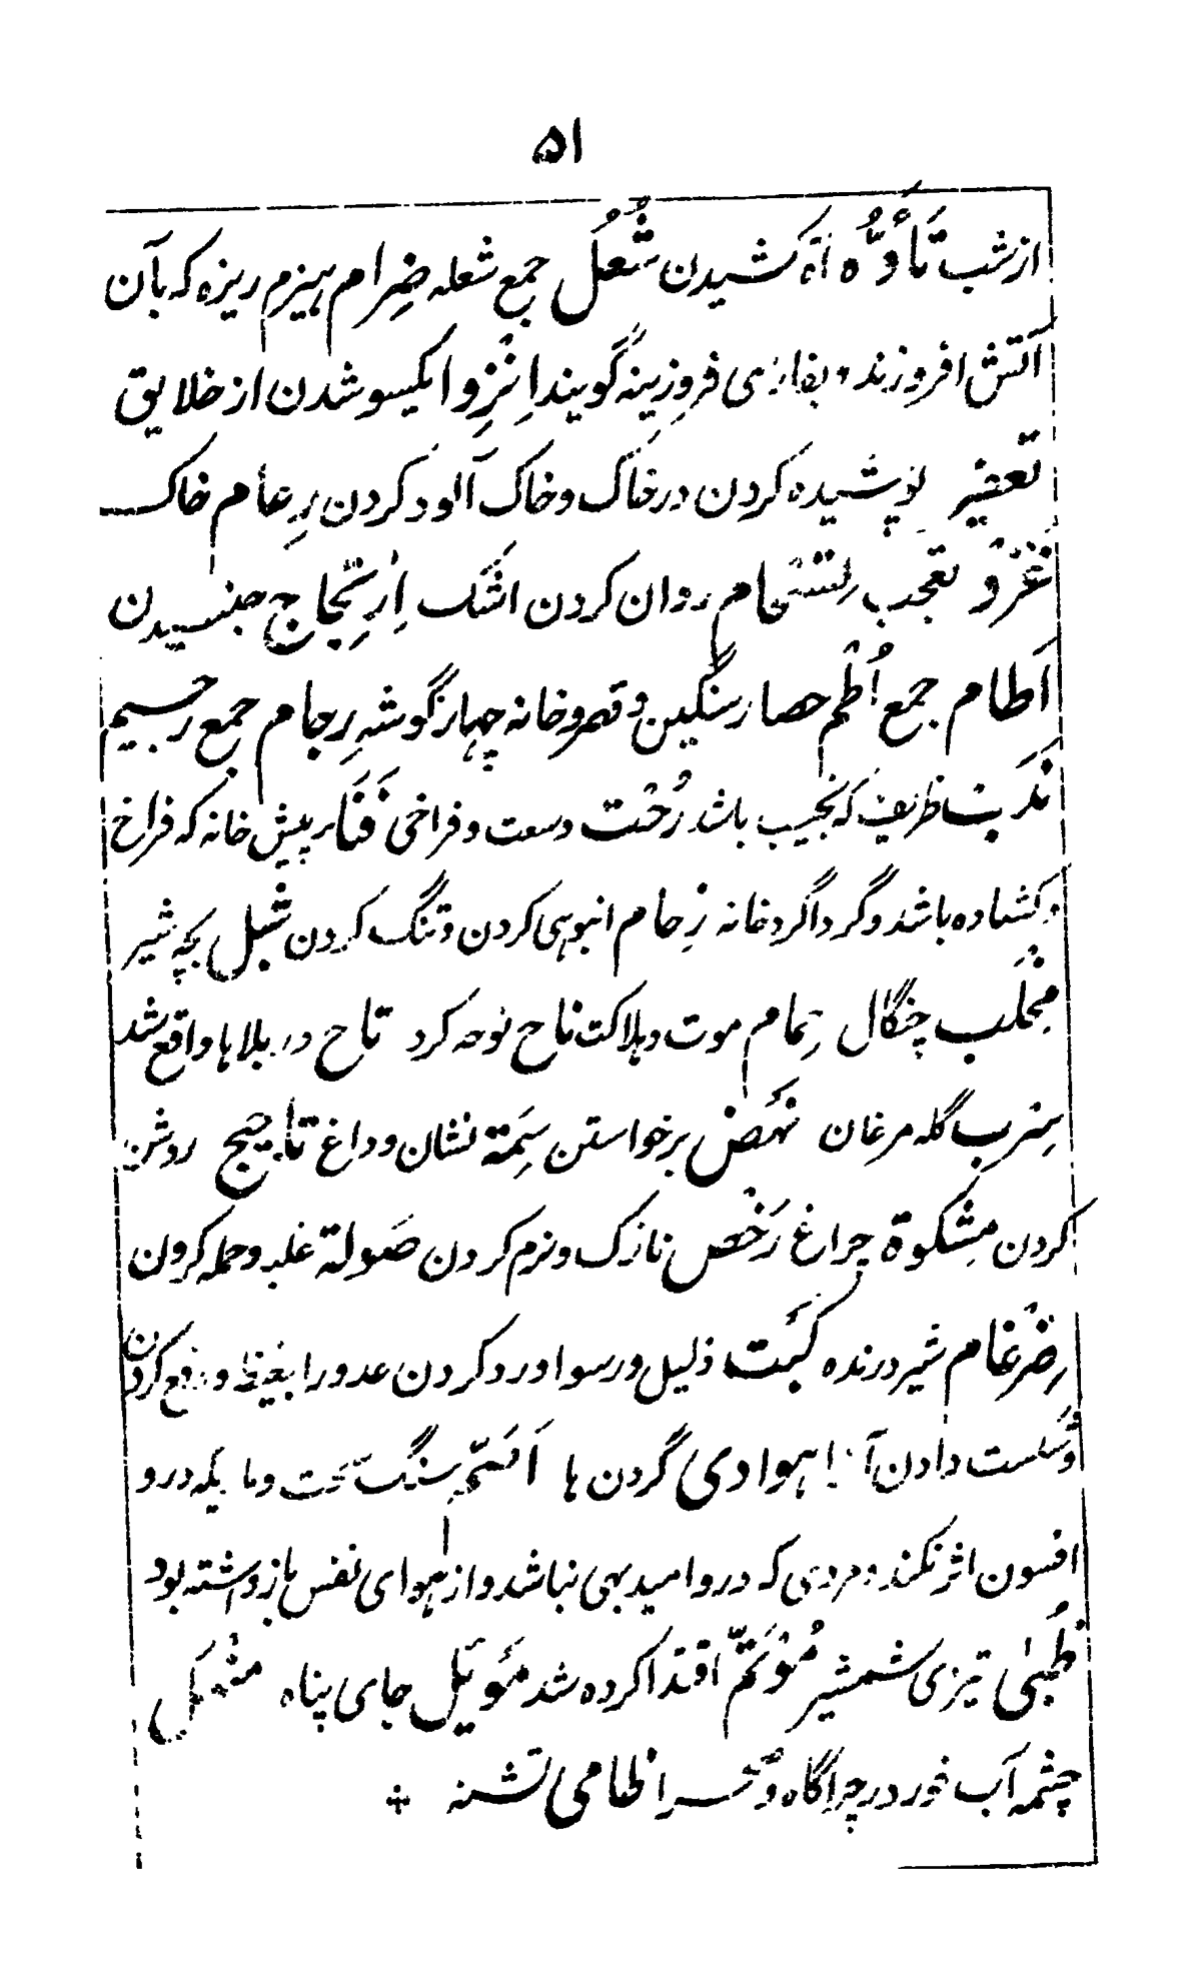 ۵۱
از شب تَأَوُّه آه کشیدن شُعُل جمع شعله ضِرام هیزم ریزه که بآن
آتش افروزند و بفارسی فروزینه گویند اِنْزِوا یکسو شدن از خلایق
تعفیر پوشیده کردن در خاک و خاک آلود کردن رغام خاک
غَرْو تعجب اِنسجام روان کردن اشک اِرْتِجاج جنبیدن
آطام جمع اُطُم حصار سنگین و قصر و خانه چهار گوشه رِجام جمع رجیم
نَدْب ظریف که نجیب باشد رُحْبت وسعت و فراخی فَنَاء پیش خانه که فراخ
و کشاده باشد و گرداگرد خانه زِحام انبوهی کردن و تنگ کردن شْبل بچه شیر
مِخْلَب چنگال حِمام موت و هلاکت ناح نوحه کرد تاح در بلاها واقع شد
سِرب گله مرغان نَهَض برخواستن سِمَة نشان و داغ تأجیج روشن
کردن مِشکوة چراغ رَخْص نازک و نرم کردن صَولة غلبه و حمله کردن
ضِرْغام شیر درنده کَبْت ذلیل و رسوا و رد کردن عدو را بغیظ و دفع کردن
و شکست دادن آنرا هوادی گردن ها اَصَمّ سنگ سخت و ماریکه درو
افسون اثر نکند و مردی که درو امید بهی نباشد و از هوای نفس باز داشته بود
ظُبیٰ تیزی شمشیر مُؤتَمّ اقتدا کرده شد مَوئِل جای پناه منهل
چشمه آب خور در چراگاه و صحرا ظامی تشنه ÷